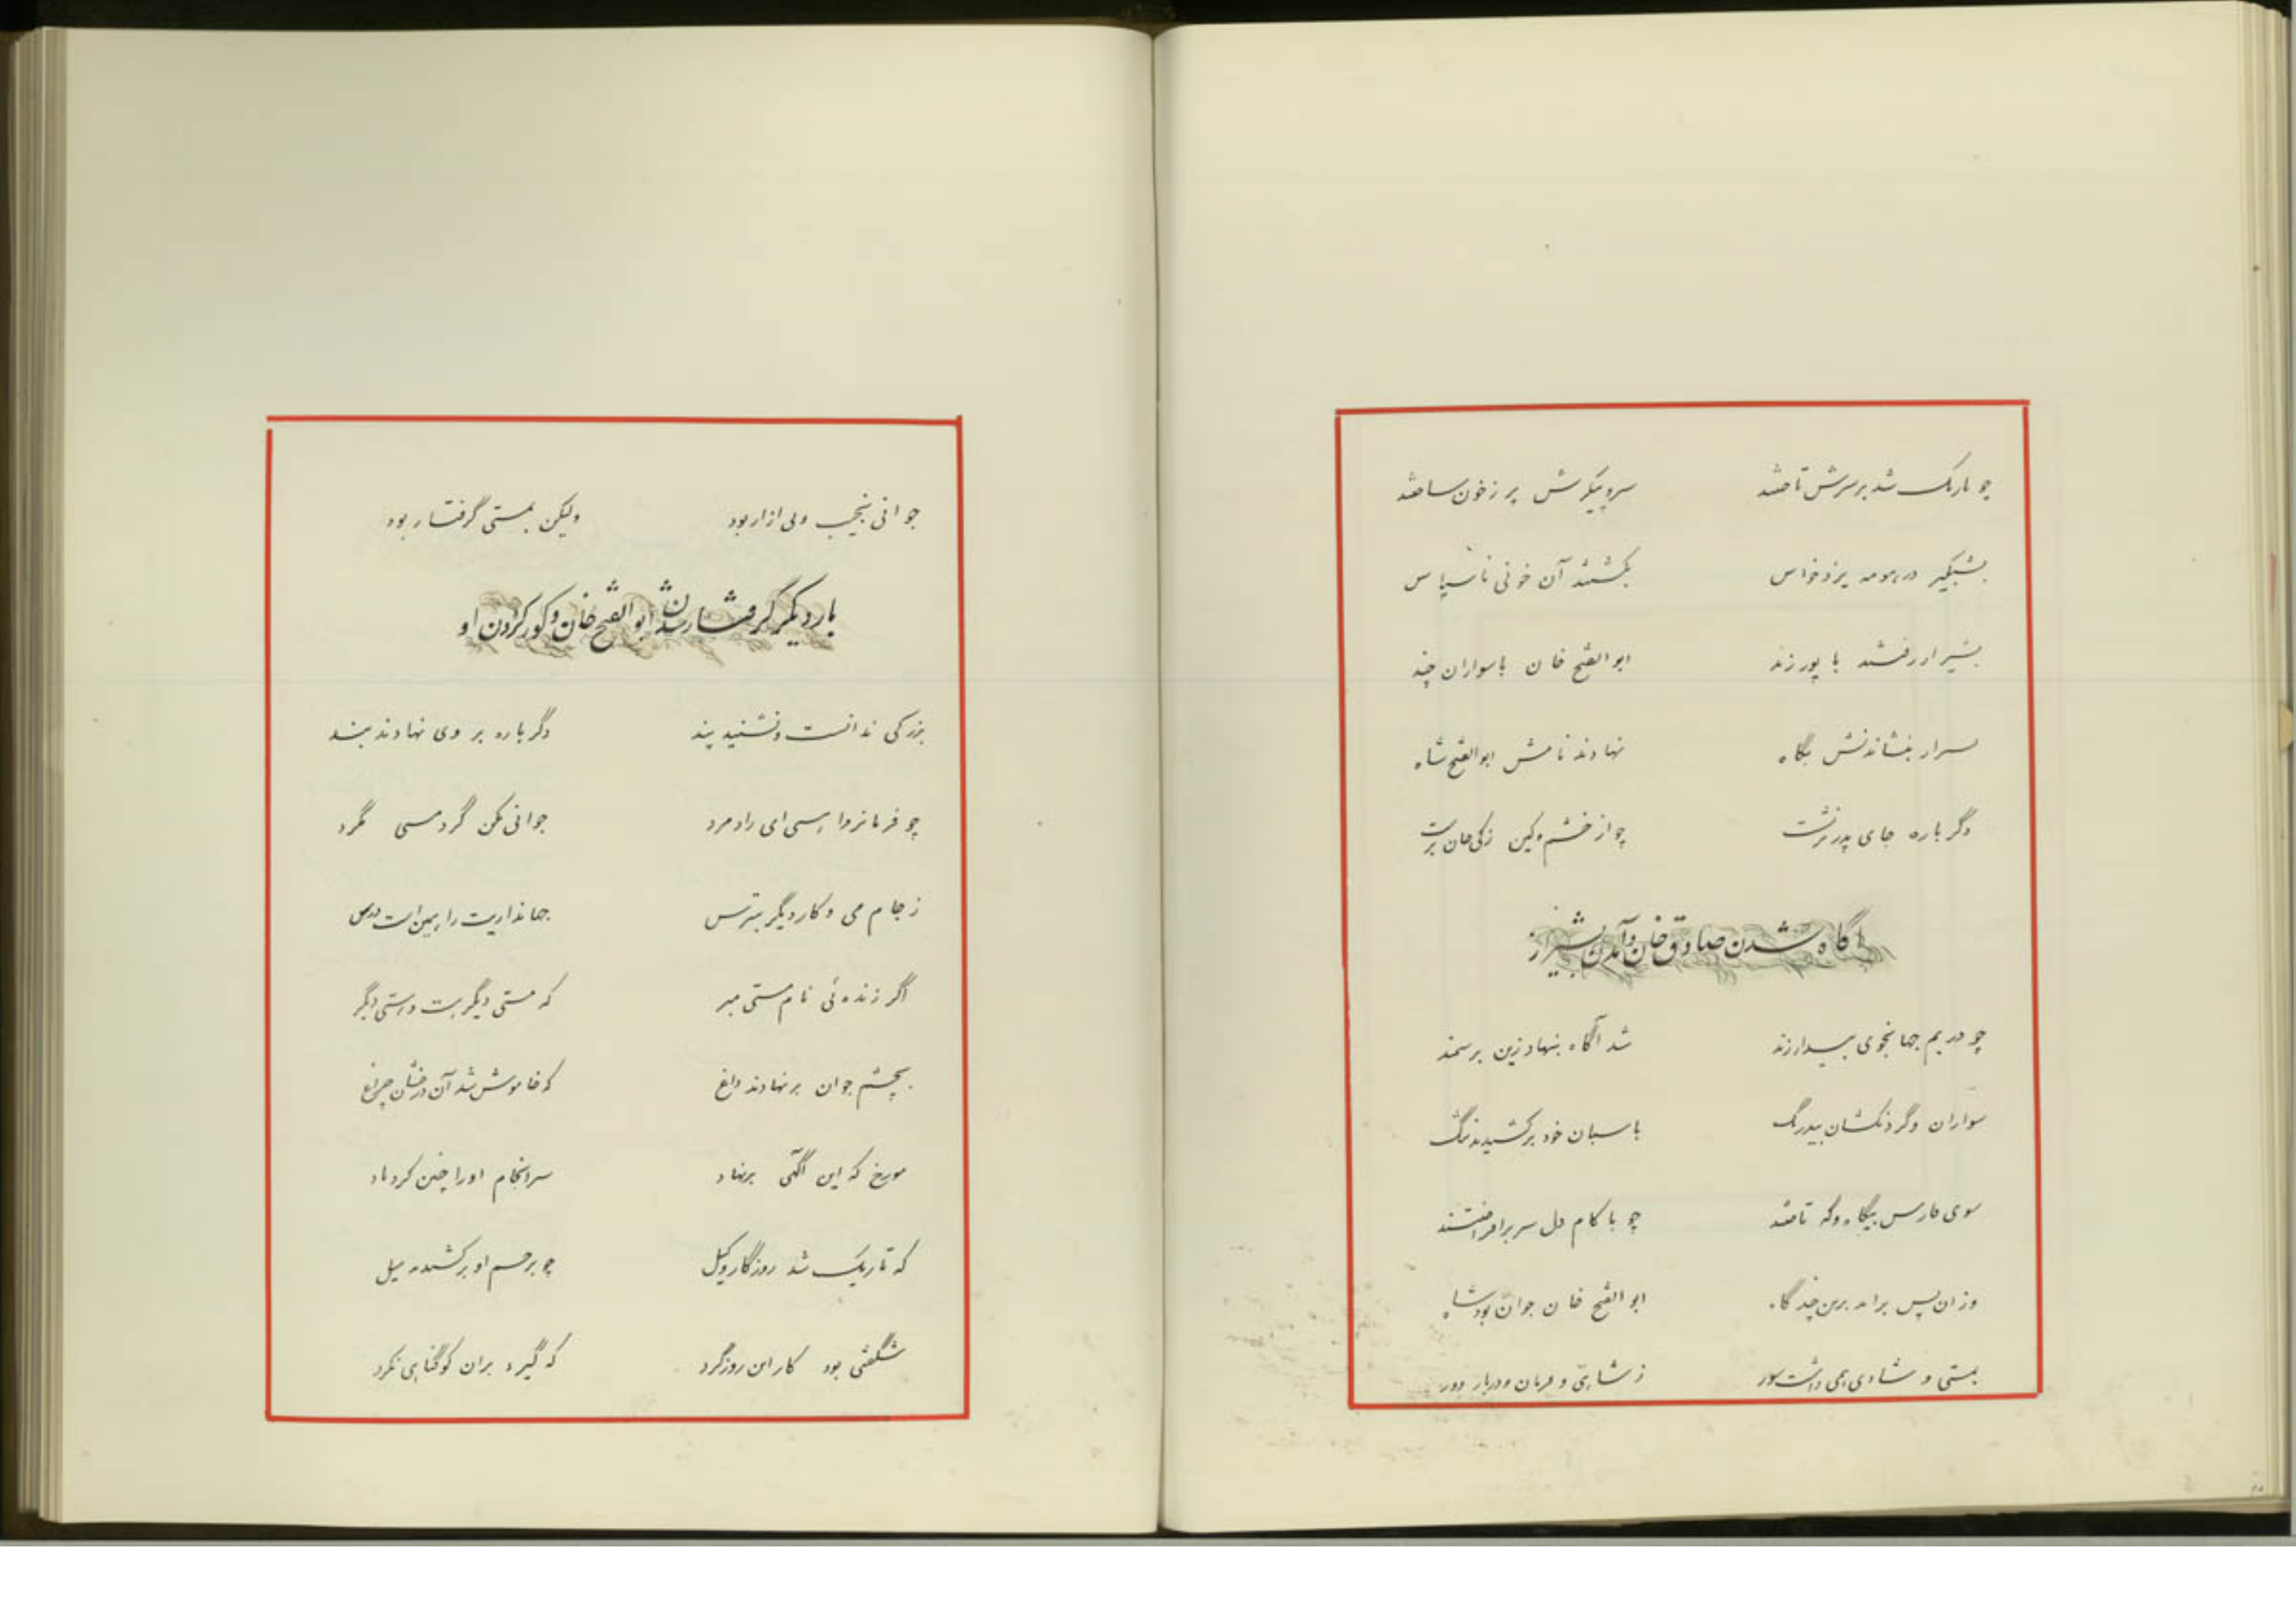 چو تاریک شد بر سرش تاختند سر و پیکرش پر ز خون ساختند
بشبگیر در بومه یزدخواس بکشتند آن خونی ناسپاس
بشیراز رفتند با پور زند ابوالفتح خان با سواران چند
سرار بنشاندنش بگاه نهادند نامش ابوالفتح شاه
دگر باره جای پدر برنشست چو از خشم و کین زکی خان برست
آگاه شدن صادق خان و آمدن بشیراز
چو در بم جهانجوی بیدار زند شد آگاه بنهاد زین بر سمند
سواران و گردنکشان بیدرنگ باسبان خود برکشیدند تنگ
سوی فارس بیگاه و گه تاختند چو با کام دل سر برافراختند
وزان پس برآمد برین چند گاه ابوالفتح خان جوان بود شاه
بمستی و شادی همی داشت سور ز شاهی و فرمان و دربار دور
جوانی نجیب و دل ازار بود ولیکن بمستی گرفتار بود
بار دیگر گرفتار شدن ابوالفتح خان و کور کردن او
بزرگی ندانست و نشنید پند دگر باره بر وی نهادند بند
چو فرمانروا هستی ای رادمرد جوانی مکن گرد مستی مگرد
ز جام می و کار دیگر بترس جهانداریت را همین است درس
اگر زنده‌ئی نام مستی مبر که مستی دیگر هست و هستی دگر
بچشم جوان برنهادند داغ که خاموش شد آن درخشان چراغ
مورخ که این آگهی برنهاد سرانجام او را چنین کرد یاد
که تاریک شد روزگار وکیل چو بر چشم او برکشیدند میل
شگفتی بود کار این روزگرد که گیرد بران کو گناهی نکرد